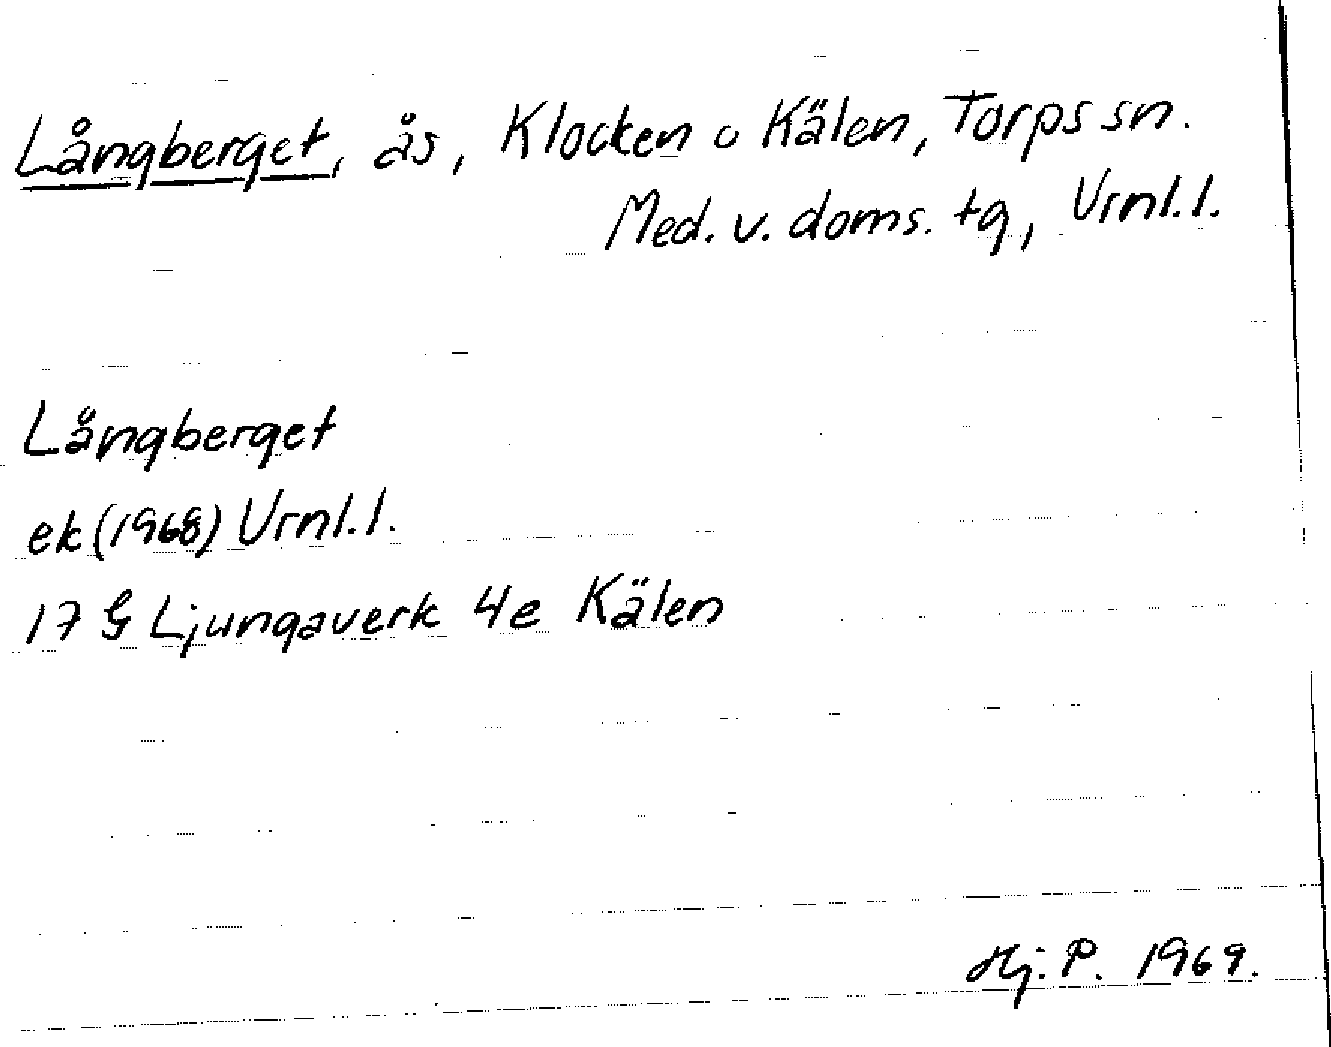 Långberget, ås, Klocken o Kälen, Torps sn.
Med. v. doms. tg, Vrnl.l.
Långberget
ek (1968) Vrnl.l.
17 G Ljungaverk 4e Kälen
Hj. P. 1969.